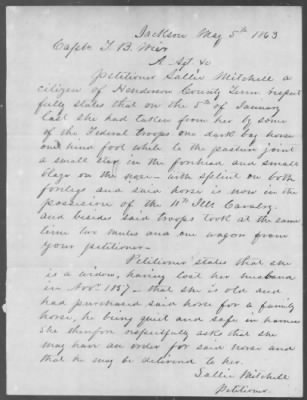 Jackson May 5th 1863
Capt. T. B. Weir
A. Agt &c
Petitioner Sallie Mitchell a
citizen of Henderson County Tenn respect
fully states that on the 5th of January
last she had taken from her by some
of the Federal troops one dark bay horse
one hind foot white to the pastern joint
a small star in the forehead and small
blaze on the nose - with splint on both
forelegs and said horse is now in the
possession of the 11th Ills Cavalry.
and besides said troops took at the same
time two mules and one wagon from
your petitioner -
Petitioner states that she
is a widow, having lost her husband
in Nov. 1857 - that she is old and
had purchased said horse for a family
horse, he being quiet and safe in harness
She therefore respectfully asks that she
may have an order for said horse and
that he may be delivered to her.
Sallie Mitchell
Petitioner